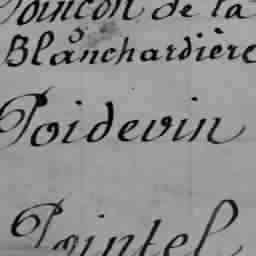 Poinçon de la
Blanchardière
Poidevin
Pointel